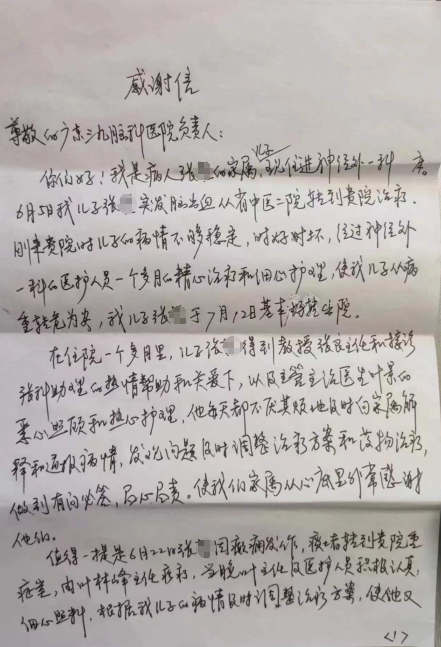 感谢信
尊敬的广东三九脑科医院负责人:
你们好!我是病人张 的家属,儿子现住进神经外一科 床。
6月5日我儿子张 突发脑出血从省中医二院转到贵院治疗.
刚来贵院时儿子的病情不够稳定,时好时坏,经过神经外
一科的医护人员一个多月的精心治疗和细心护理,使我儿子从病
重转危为安,我儿子张 于7月12日基本 出院。
在住院一个多月里,儿子张 得到教授张良主任和接诊
张科助理的热情帮助和关爱下,以及主管主治医生叶 的
悉心照顾和热心护理,他每天都不厌其烦地及时向家属解
释和通报病情,发现问题及时调整治疗方案和药物治疗,
做到有问必答,尽心尽责。使我们家属从心底里非常感谢
他们。
值得一提是6月22日张 因癫痫发作, 转到贵院重
症室,由叶林峰主任 ,当晚叶主任及医护人员积极认真,
细心照料,根据我儿子的病情及时调整治疗方案,使他又
<1>